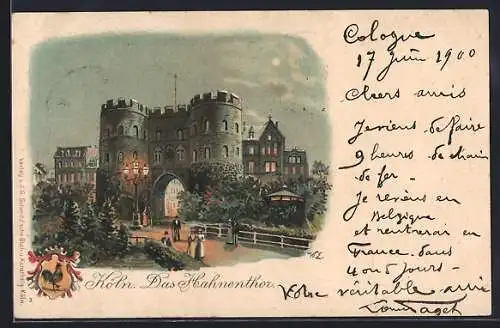 Cologne
17 Juin 1900
Chers amis
Je viens de faire
9 heures de chemin
de fer -
Je reviens en
Belgique
et rentrerai en
France dans
4 ou 5 jours -
Votre véritable amie
Köln. Das Hahnenthor.